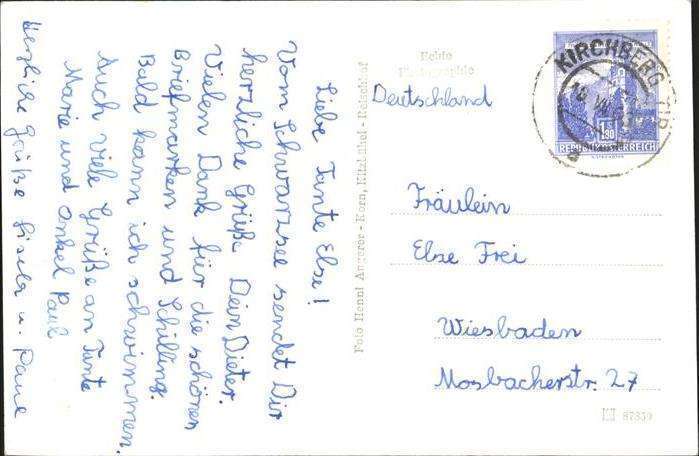 Liebe Tante Else!
Vom Schwarzsee sendet Dir
herzliche Grüße Dein Dieter.
Vielen Dank für die schönen
Briefmarken und Schilling.
Bald kann ich schwimmen.
Auch viele Grüße an Tante
Marie und Onkel Paul
Herzliche Grüße
Echte
Photographie
Foto Henni Angerer - Korn, Kitzbühel - Reisch
Deutschland
KIRCHBERG
TIR
1.80
REPUBLIK ÖSTERREICH
Fräulein
Else Frei
Wiesbaden
Mosbacherstr. 27
87359